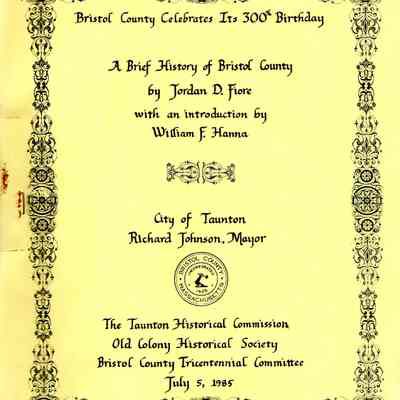 Bristol County Celebrates Its 300th Birthday
A Brief History of Bristol County
by Jordan D. Fiore
with an introduction by
William F. Hanna
City of Taunton
Richard Johnson, Mayor
BRISTOL COUNTY
MASSACHUSETTS
The Taunton Historical Commission
Old Colony Historical Society
Bristol County Tricentennial Committee
July 5, 1985